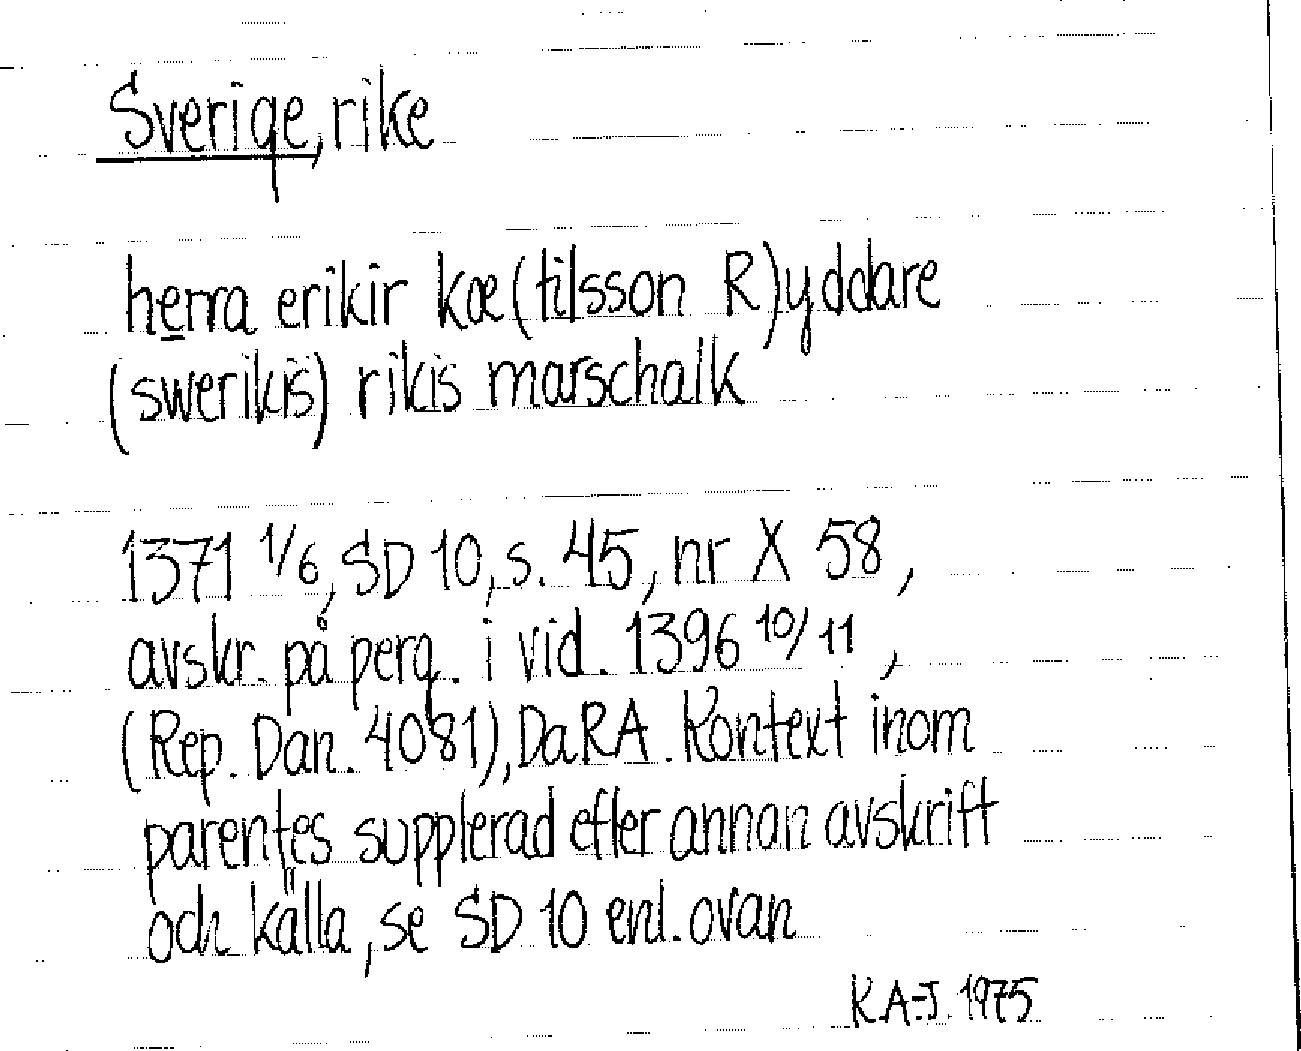 Sverige, rike
herra erikir kæ(tilsson R)yddare
(swerikis) rikis marschalk
1371 1/6, SD 10, s. 45, nr X 58,
avskr. på perg. i vid. 1396 10/11,
(Rep. Dan. 4081), DaRA. Kontext inom
parentes supplerad efter annan avskrift
och källa, se SD 10 enl. ovan
K A-J. 1975